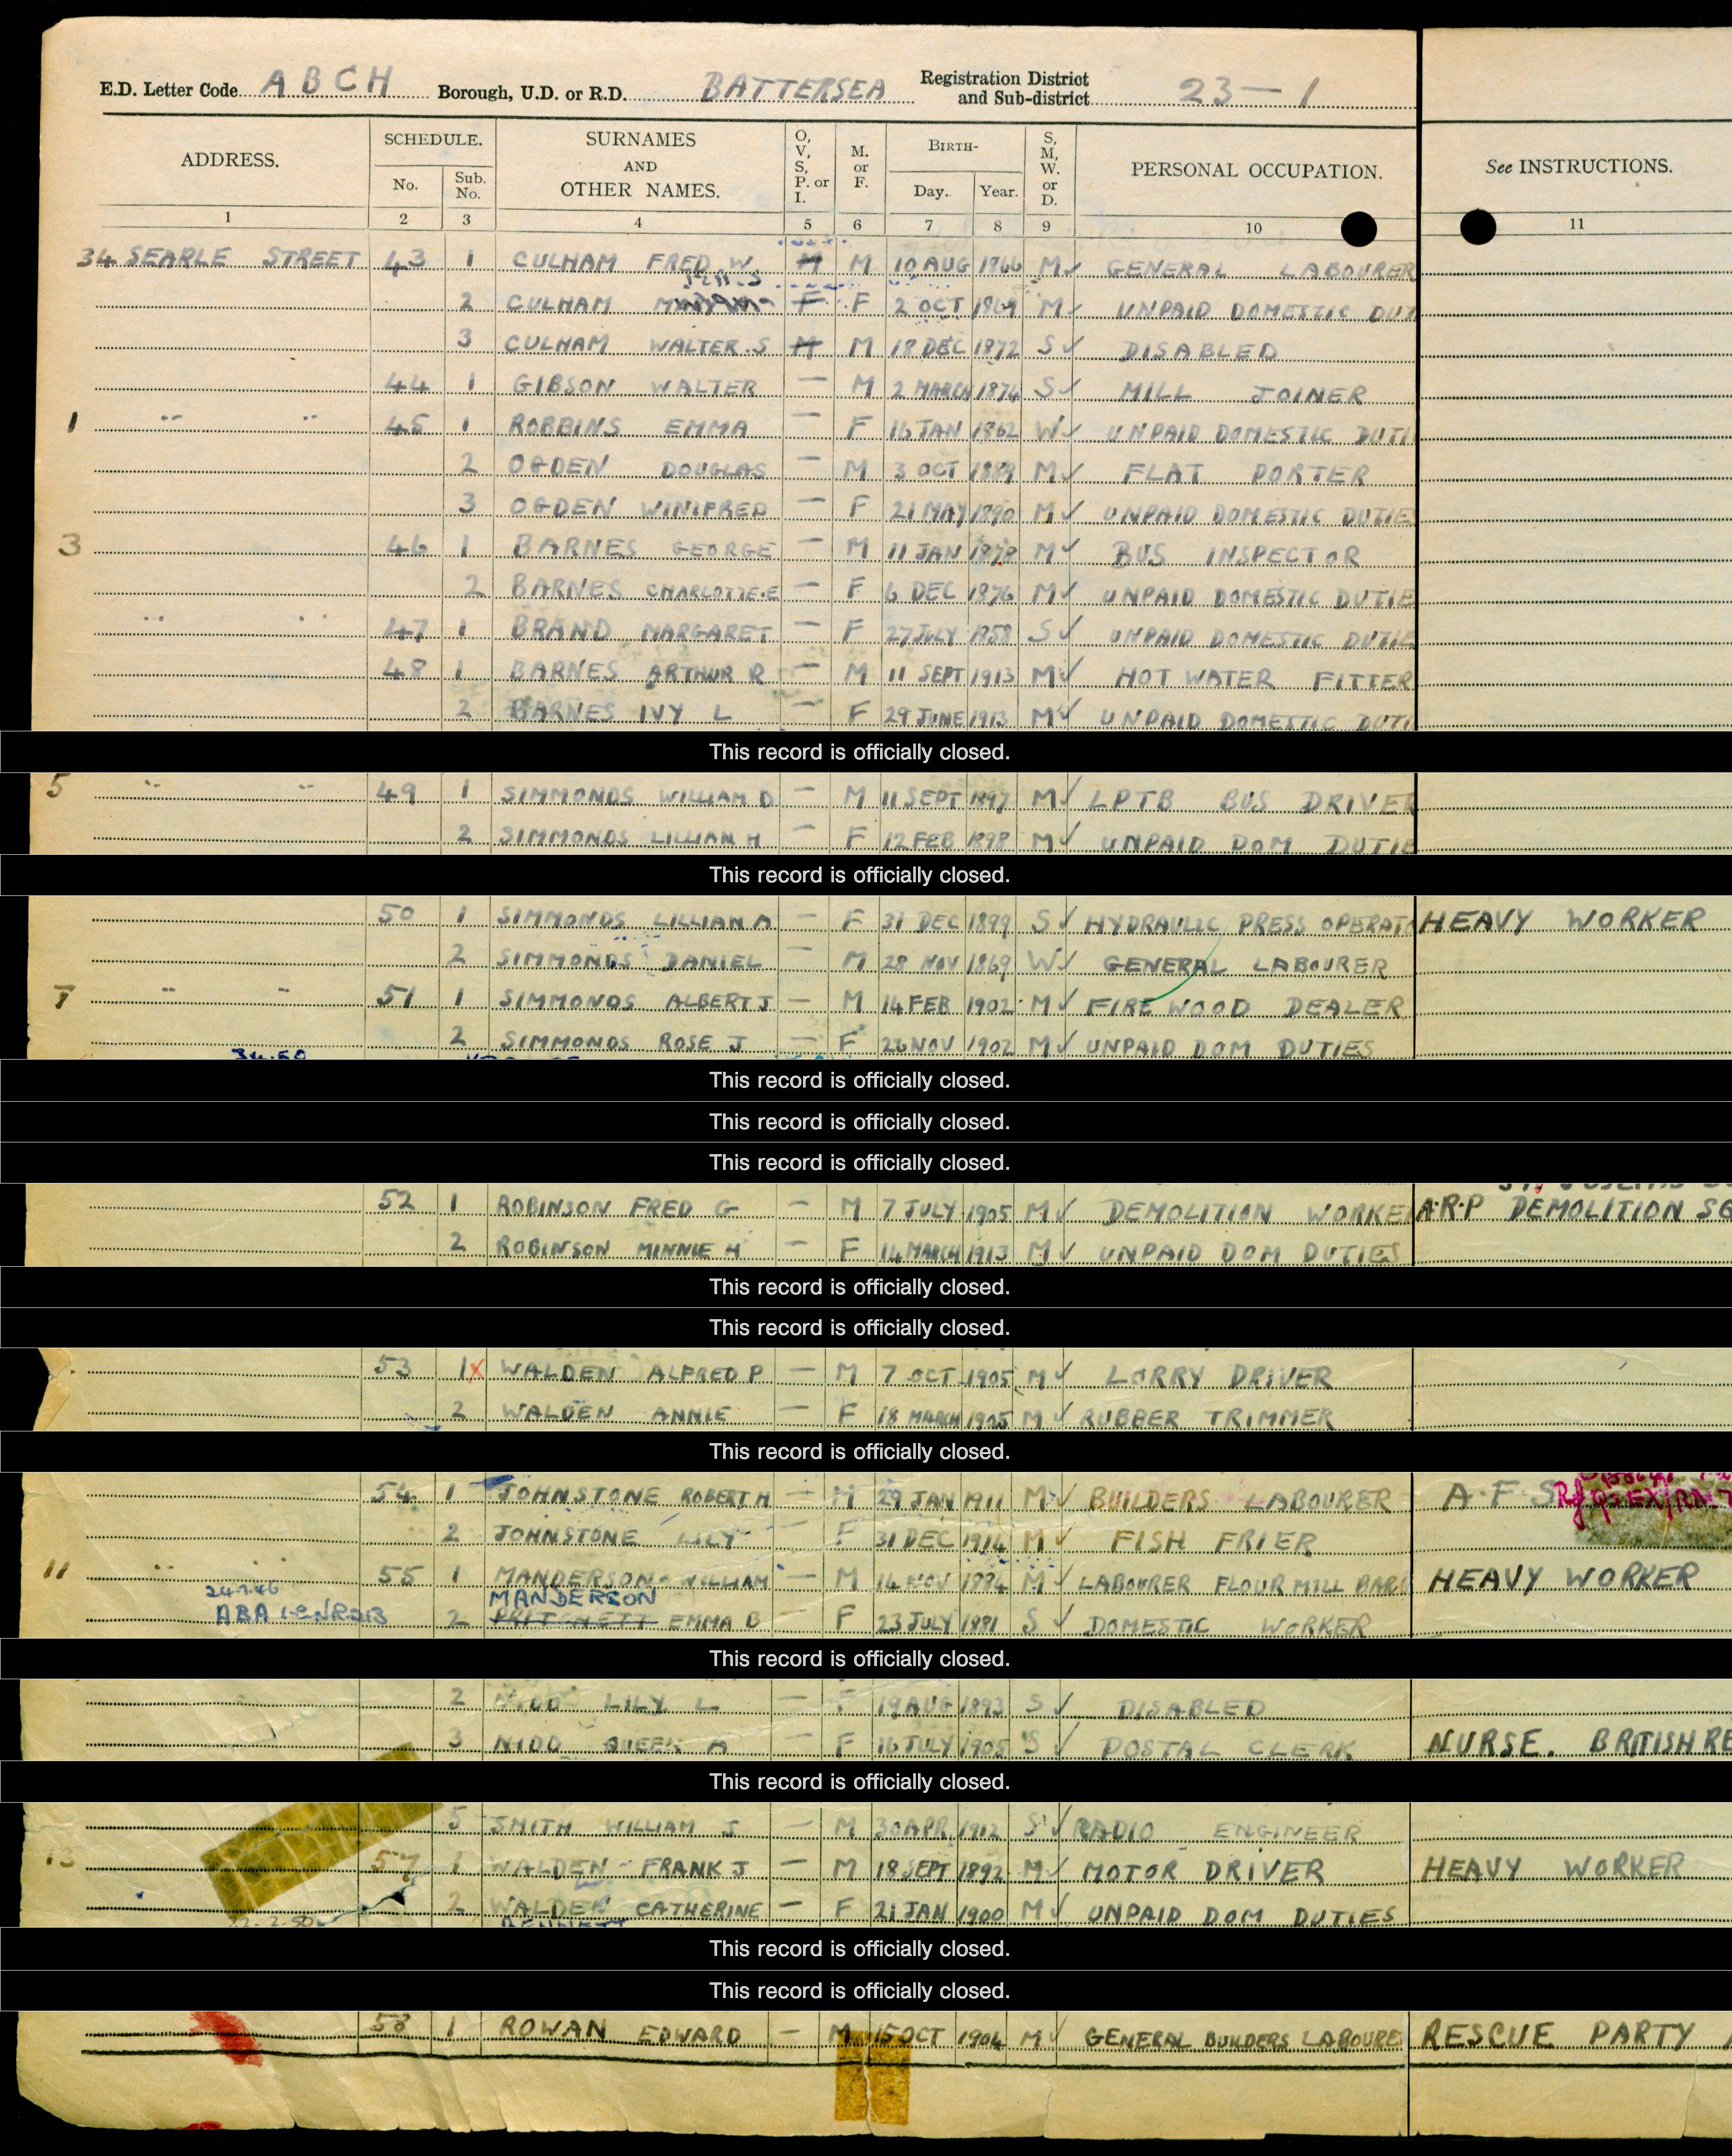 E.D. Letter Code ABCH Borough, U.D. or R.D. BATTERSEA Registration District and Sub-district 23-1
ADDRESS. SCHEDULE. No. Sub. No. SURNAMES AND OTHER NAMES. O, V, S, P. or I. M. or F. BIRTH- Day. Year. S, M, W. or D. PERSONAL OCCUPATION. See INSTRUCTIONS.
1 2 3 4 5 6 7 8 9 10 11
34 SEARLE STREET 43 1 CULHAM FRED W M M 10 AUG 1866 M ✓ GENERAL LABOURER
2 CULHAM F F 2 OCT 1869 M UNPAID DOMESTIC DUT
3 CULHAM WALTER.S M M 18 DEC 1872 S ✓ DISABLED
44 1 GIBSON WALTER — M 2 MARCH 1874 S ✓ MILL JOINER
1 " " 45 1 ROBBINS EMMA — F 16 JAN 1862 W ✓ UNPAID DOMESTIC DUTI
2 OGDEN DOUGLAS — M 3 OCT 1889 M ✓ FLAT PORTER
3 OGDEN WINIFRED — F 21 MAY 1890 M ✓ UNPAID DOMESTIC DUTIE
3 46 1 BARNES GEORGE — M 11 JAN 1878 M ✓ BUS INSPECTOR
2 BARNES CHARLOTTE.E — F 6 DEC 1876 M ✓ UNPAID DOMESTIC DUTIE
" " 47 1 BRAND MARGARET — F 27 JULY 1858 S ✓ UNPAID DOMESTIC DUTIE
48 1 BARNES ARTHUR R — M 11 SEPT 1913 M ✓ HOT WATER FITTER
2 BARNES IVY L — F 29 JUNE 1913 M ✓ UNPAID DOMESTIC DUTI
This record is officially closed.
5 " " 49 1 SIMMONDS WILLIAM D — M 11 SEPT 1897 M ✓ LPTB BUS DRIVER
2 SIMMONDS LILLIAN H — F 12 FEB 1898 M ✓ UNPAID DOM DUTIE
This record is officially closed.
50 1 SIMMONDS LILLIAN A — F 31 DEC 1899 S ✓ HYDRAULIC PRESS OPERAT HEAVY WORKER
2 SIMMONDS DANIEL — M 28 NOV 1869 W ✓ GENERAL LABOURER
7 " " 51 1 SIMMONDS ALBERT J — M 14 FEB 1902 M ✓ FIRE WOOD DEALER
2 SIMMONDS ROSE J — F 26 NOV 1902 M ✓ UNPAID DOM DUTIES
This record is officially closed.
This record is officially closed.
This record is officially closed.
52 1 ROBINSON FRED G — M 7 JULY 1905 M ✓ DEMOLITION WORKE A.R.P DEMOLITION SQ
2 ROBINSON MINNIE H — F 14 MARCH 1913 M ✓ UNPAID DOM DUTIES
This record is officially closed.
This record is officially closed.
53 1 X WALDEN ALFRED P — M 7 OCT 1905 M ✓ LORRY DRIVER
2 WALDEN ANNIE — F 18 MARCH 1905 M ✓ RUBBER TRIMMER
This record is officially closed.
54 1 JOHNSTONE ROBERT H — M 29 JAN 1911 M ✓ BUILDERS LABOURER A.F.S
2 JOHNSTONE LILY — F 31 DEC 1914 M ✓ FISH FRIER
11 " " 55 1 MANDERSON WILLIAM — M 14 NOV 1884 M ✓ LABOURER FLOUR MILL BARG HEAVY WORKER
24.7.46 MANDERSON
ABA 2 PRITCHETT EMMA B — F 23 JULY 1881 S ✓ DOMESTIC WORKER
This record is officially closed.
2 NIDD LILY L — F 19 AUG 1893 S ✓ DISABLED
3 NIDD A — F 16 JULY 1905 S ✓ POSTAL CLERK NURSE. BRITISH RE
This record is officially closed.
5 SMITH WILLIAM J — M 30 APR 1912 S ✓ RADIO ENGINEER
13 57 1 WALDEN FRANK J — M 18 SEPT 1892 M ✓ MOTOR DRIVER HEAVY WORKER
2 WALDEN CATHERINE — F 21 JAN 1900 M ✓ UNPAID DOM DUTIES
This record is officially closed.
This record is officially closed.
58 1 ROWAN EDWARD — M 15 OCT 1904 M ✓ GENERAL BUILDERS LABOURE RESCUE PARTY